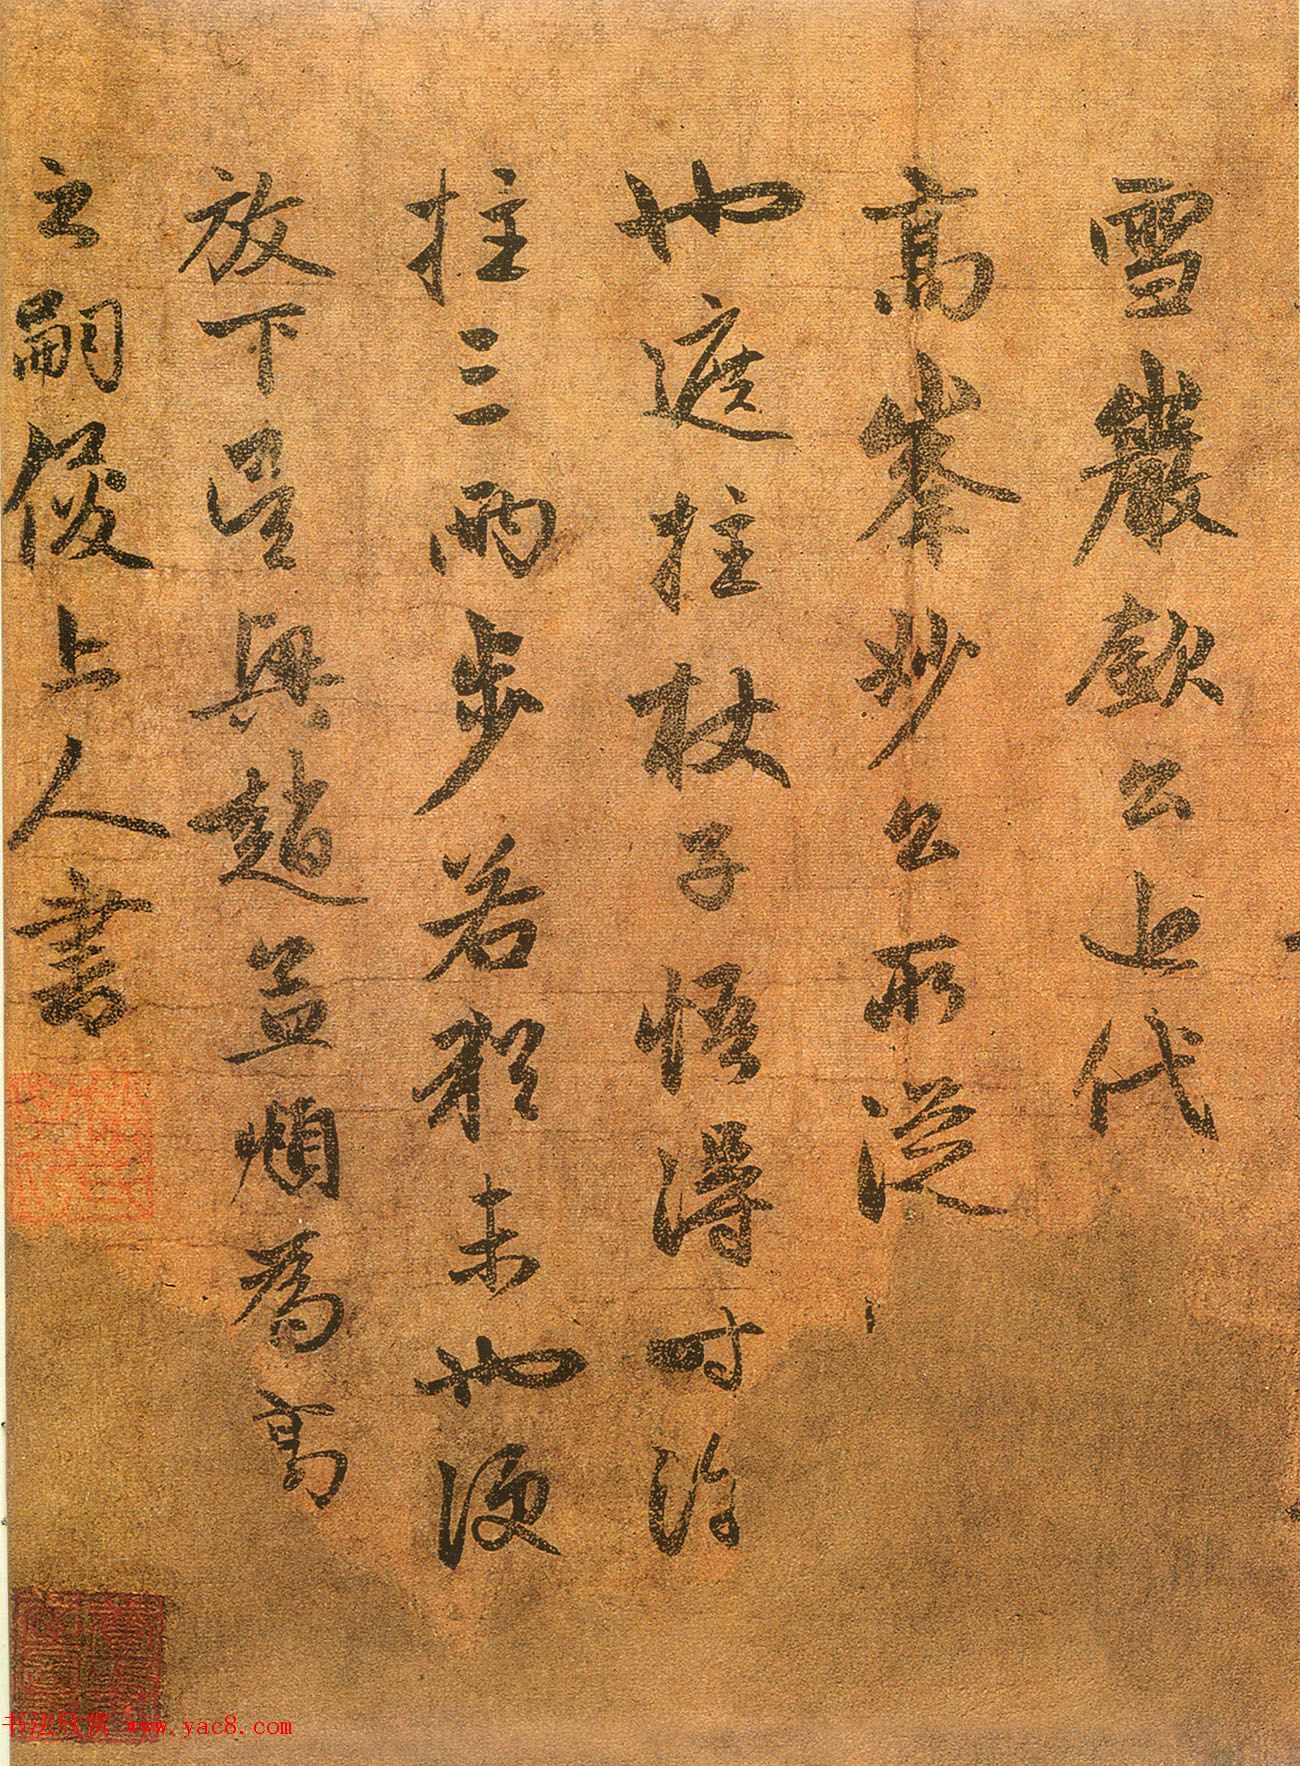 雪巖欽公上代
高峯妙公所從
也遮拄杖子悟得时许
拄三兩步若於未也便
放下是與趙孟頫為高
之嗣俊上人書
书法欣赏 www.yac8.com